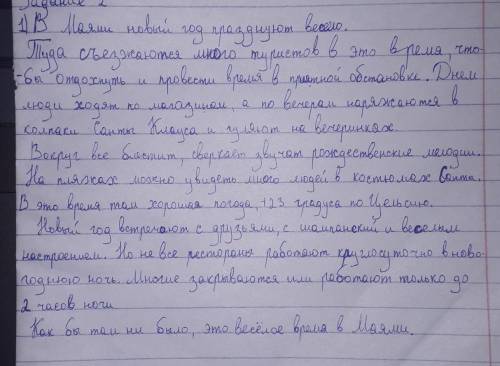 Задание 2
1) В Маями новый год празднуют весело.
Туда съезжаются много туристов в это время, что-
-бы отдохнуть и провести время в приятной обстановке. Днем
люди ходят по магазинам, а по вечерам наряжаются в
колпаки Санты Клауса и гуляют на вечеринках.
Вокруг все блестит, сверкает звучат рождественские мелодии.
На пляжах можно увидеть много людей в костюмах Санта.
В это время там хорошая погода, +23 градуса по Цельсию.
Новый год встречают с друзьями, с шампанский и веселым
настроением. Но не все рестораны работают круглосуточно в ново-
годнюю ночь. Многие закрываются или работают только до
2 часов ночи
Как бы там ни было, это весёлое время в Маями.